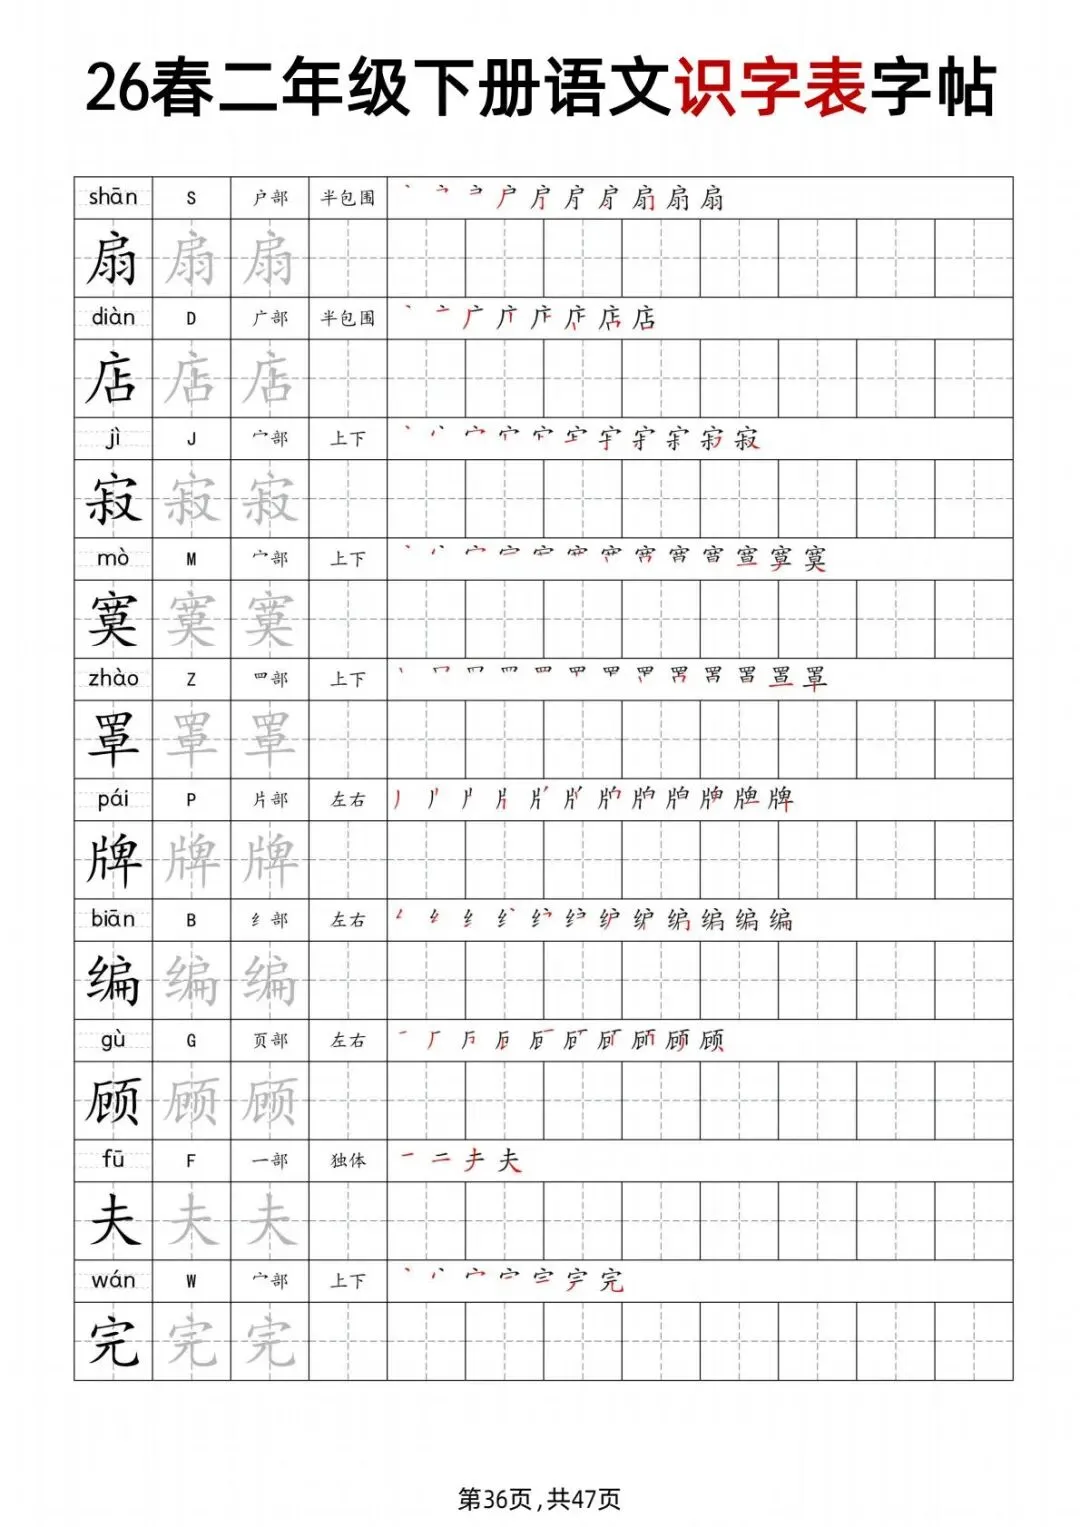 26春二年级下册语文识字表字帖
shān S 户部 半包围
扇 扇 扇
diàn D 广部 半包围
店 店 店
jì J 宀部 上下
寂 寂 寂
mò M 宀部 上下
寞 寞 寞
zhào Z 罒部 上下
罩 罩 罩
pái P 片部 左右
牌 牌 牌
biān B 纟部 左右
编 编 编
gù G 页部 左右
顾 顾 顾
fū F 一部 独体 一 二 夫 夫
夫 夫 夫
wán W 宀部 上下
完 完 完
第36页,共47页